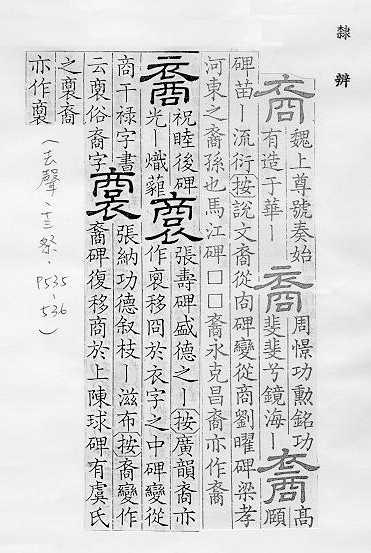 隸辨
裔
魏上尊號奏始
有造于華丨
裔
周憬功勳銘功
斐斐兮鏡海丨
裔
高
頤
碑苗丨流衍按說文裔從㕯碑變從商劉曜碑梁孝
河東之裔孫也馬江碑□□裔永克昌裔亦作裔
裔
祝睦後碑
光丨熾
裔
張壽碑盛德之丨按廣韻裔亦
作移冏於衣字之中碑變從
商干祿字書
云俗裔字
裔
張納功德叙枝丨滋布按裔變作
裔碑復移商於上陳球碑有虞氏
之裔
亦作
（去聲、十三祭、P535-536）